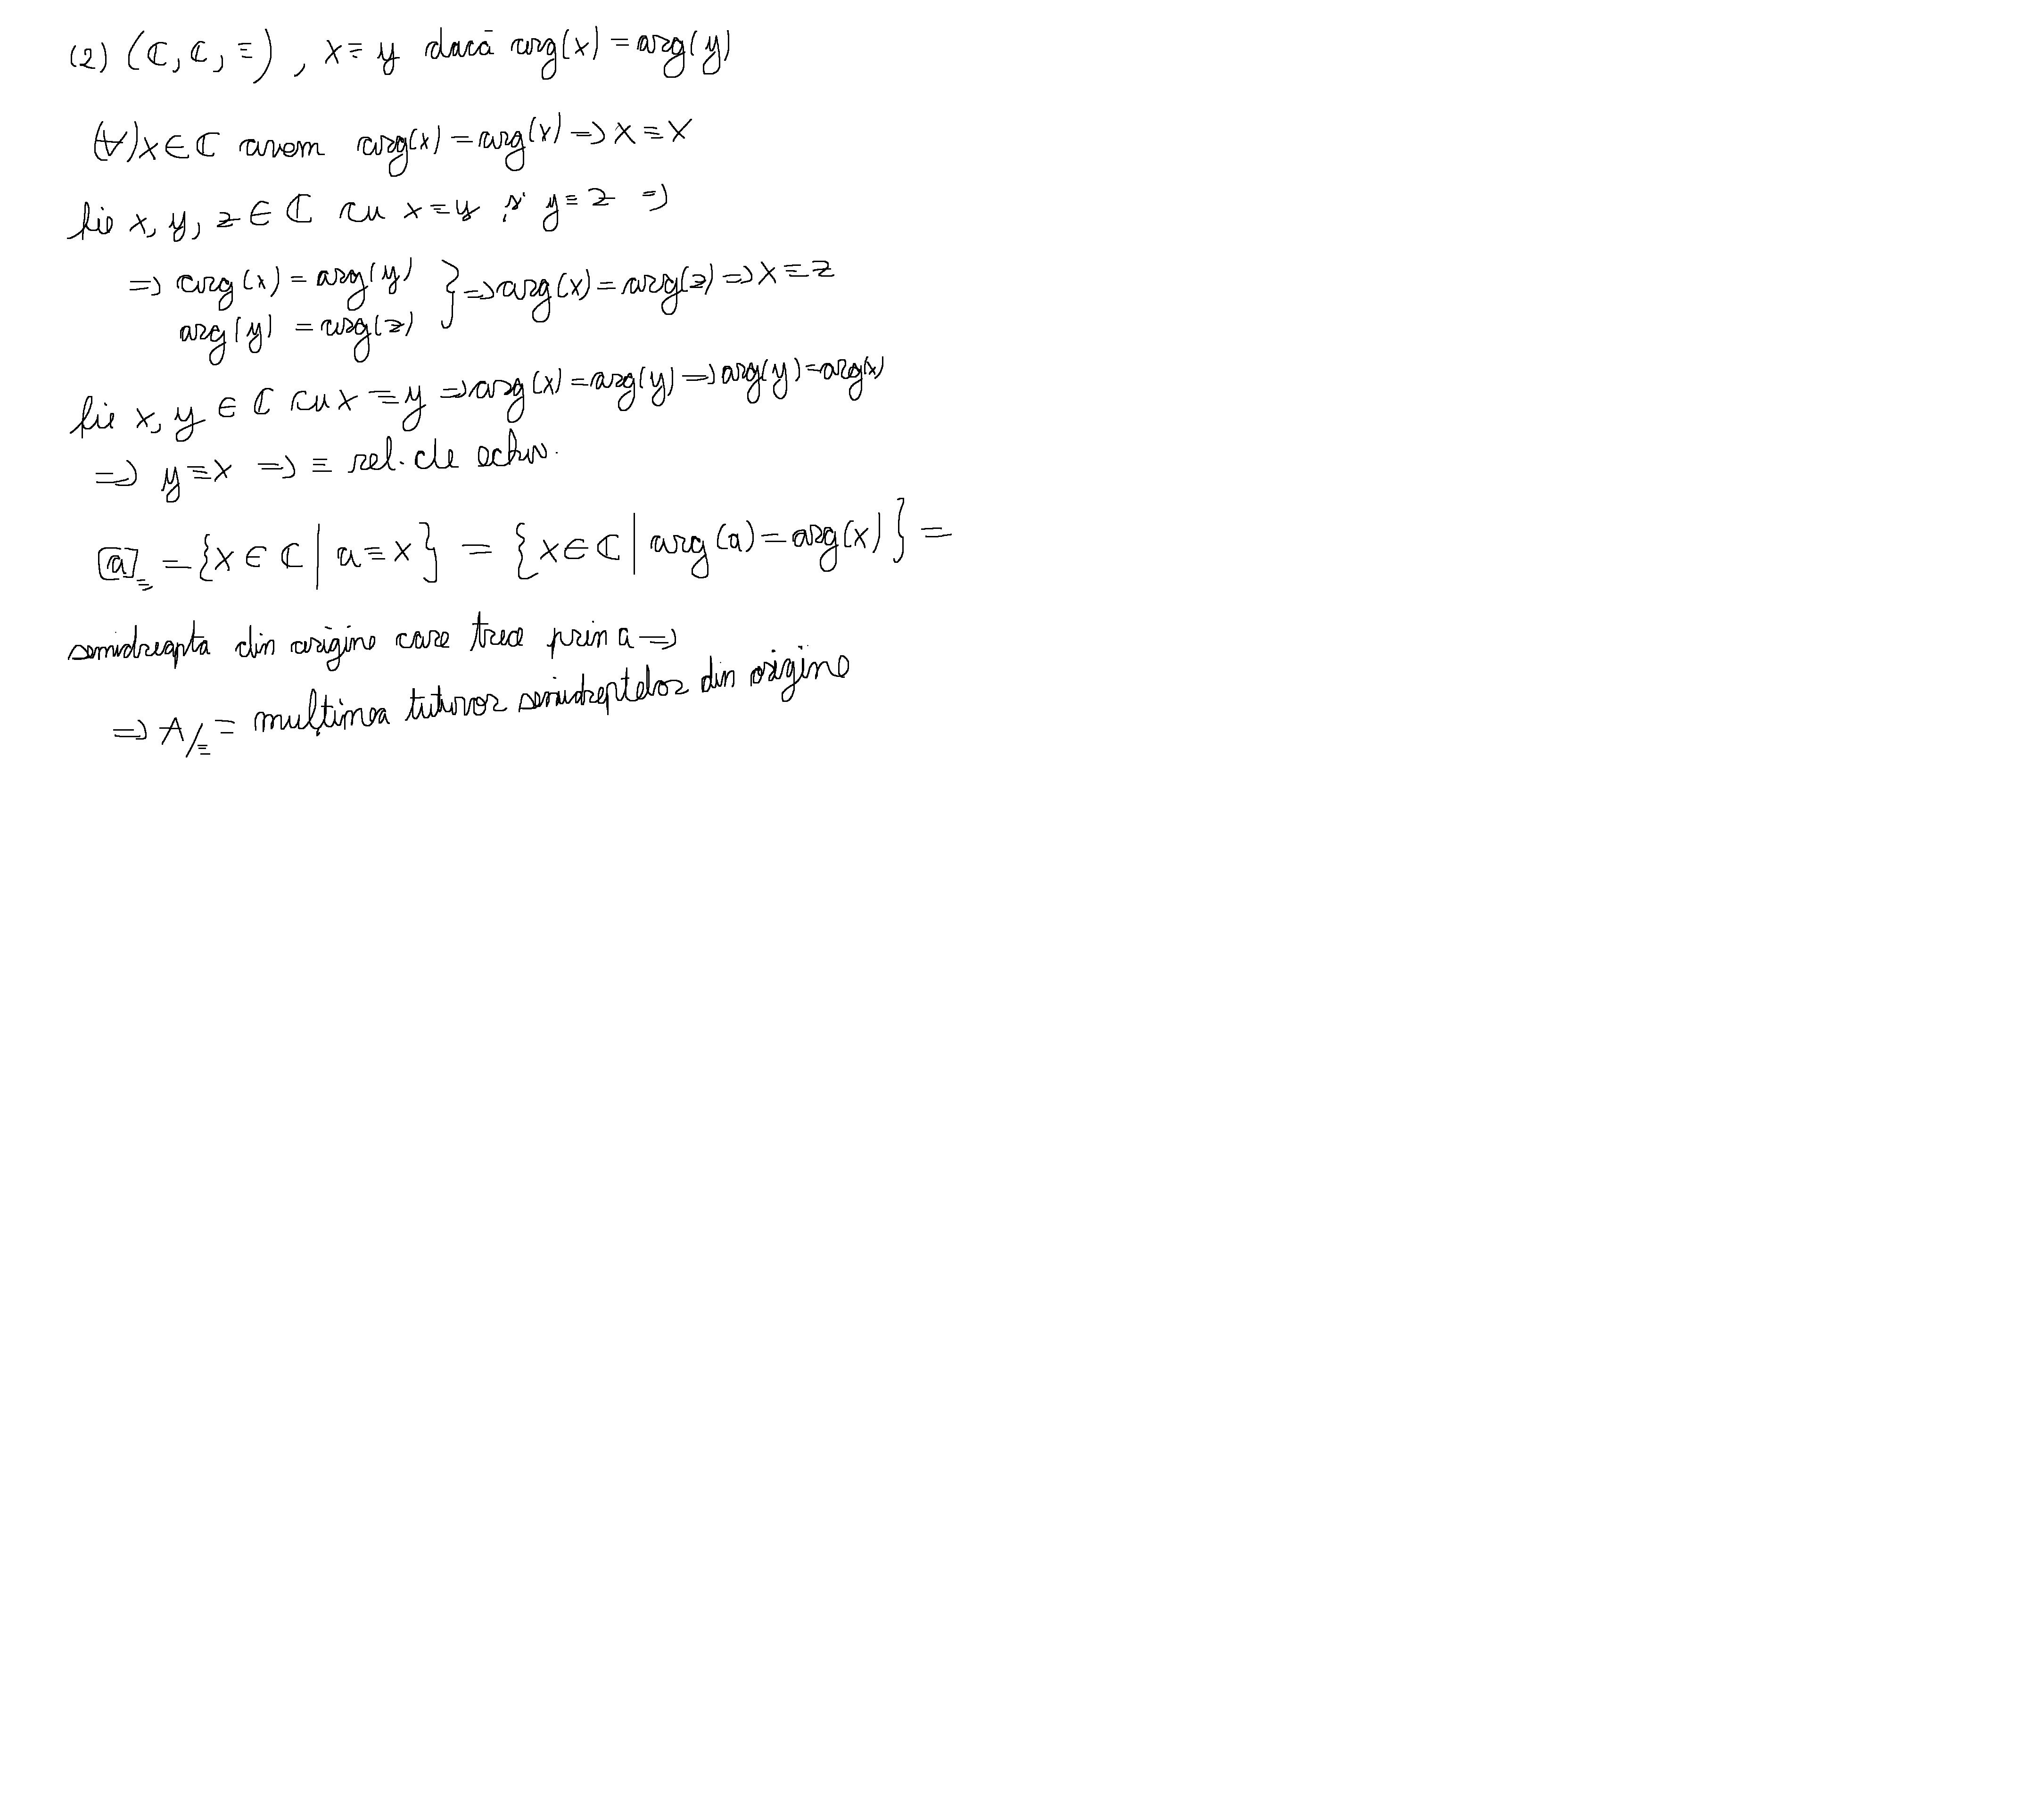 (2) (ℂ, ℂ, ≡), x ≡ y dacă arg(x) = arg(y)
(∀) x ∈ ℂ avem arg(x) = arg(x) => x ≡ x
fie x, y, z ∈ ℂ cu x ≡ y și y ≡ z =>
=> arg(x) = arg(y)
arg(y) = arg(z) } => arg(x) = arg(z) => x ≡ z
fie x, y ∈ ℂ cu x ≡ y => arg(x) = arg(y) => arg(y) = arg(x)
=> y ≡ x => ≡ rel. de echiv.
[a]≡ = {x ∈ ℂ | a ≡ x} = {x ∈ ℂ | arg(a) = arg(x)} =
semidreapta din origine care trece prin a =>
=> A/≡ = mulțimea tuturor semidreptelor din origine